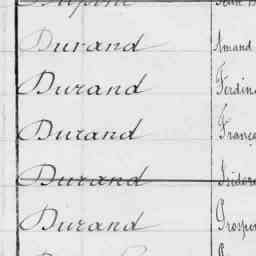 Durand Amand
Durand Ferdin
Durand Franç
Durand Isidore
Durand Prosper